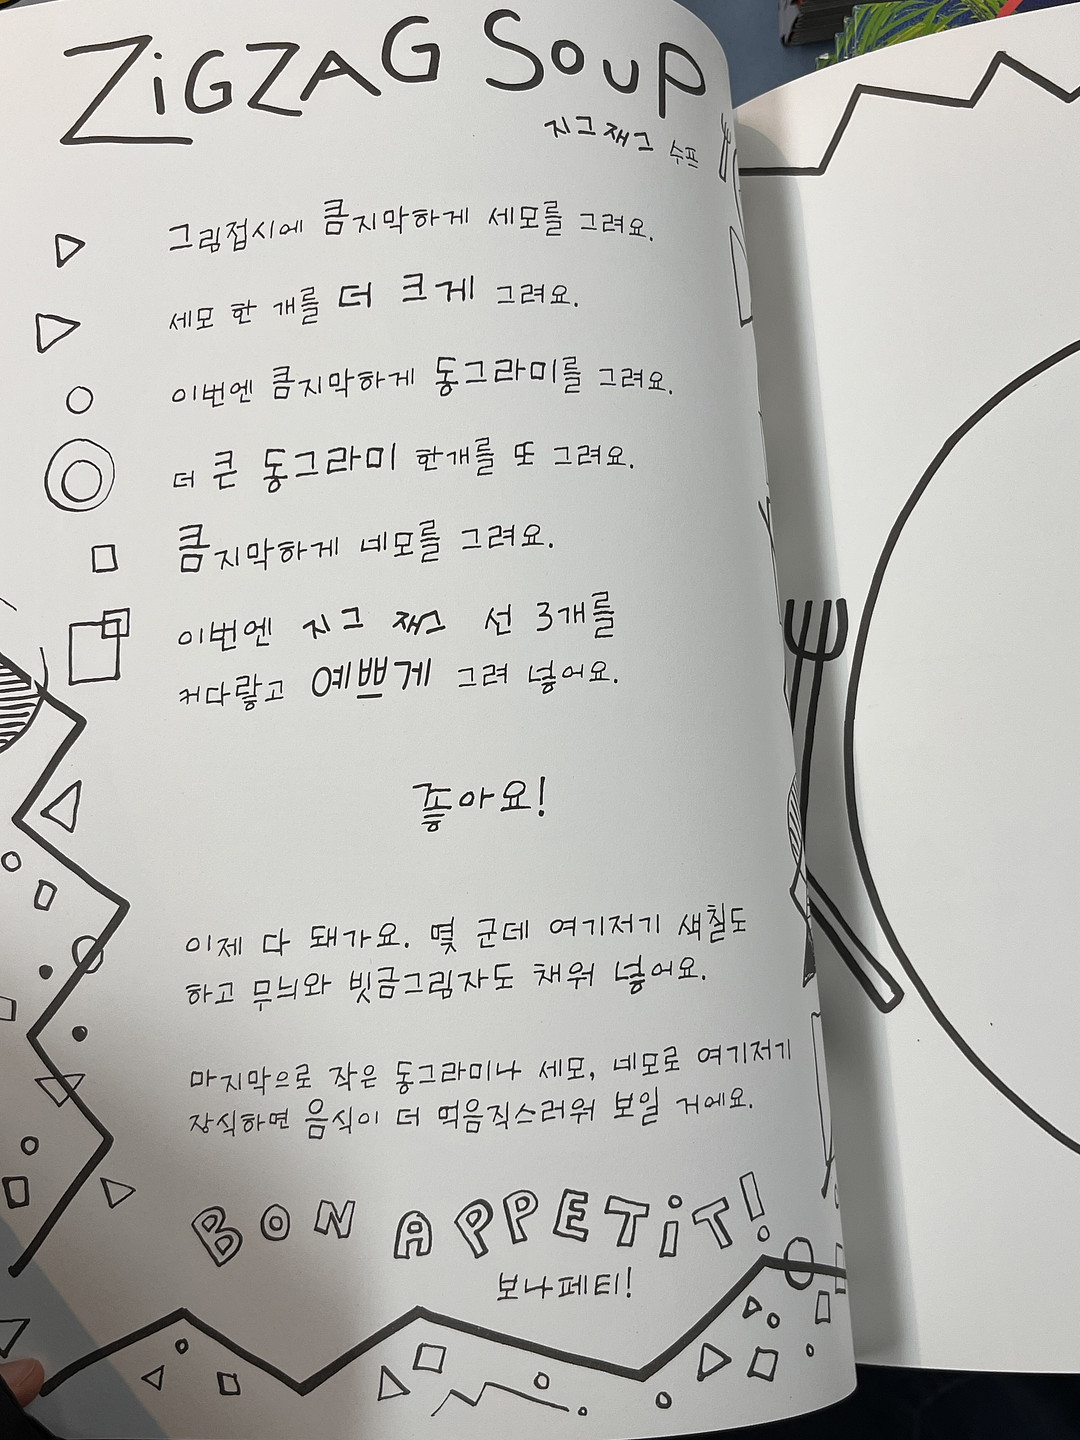 ZiGZAG SouP
지그재그 수프
그림접시에 큼지막하게 세모를 그려요.
세모 한 개를 더 크게 그려요.
이번엔 큼지막하게 동그라미를 그려요.
더 큰 동그라미 한개를 또 그려요.
큼지막하게 네모를 그려요.
이번엔 지그 재그 선 3개를
커다랗고 예쁘게 그려 넣어요.
좋아요!
이제 다 돼가요. 몇 군데 여기저기 색칠도
하고 무늬와 빗금그림자도 채워 넣어요.
마지막으로 작은 동그라미나 세모, 네모로 여기저기
장식하면 음식이 더 먹음직스러워 보일 거에요.
BON APPETiT!
보나페티!